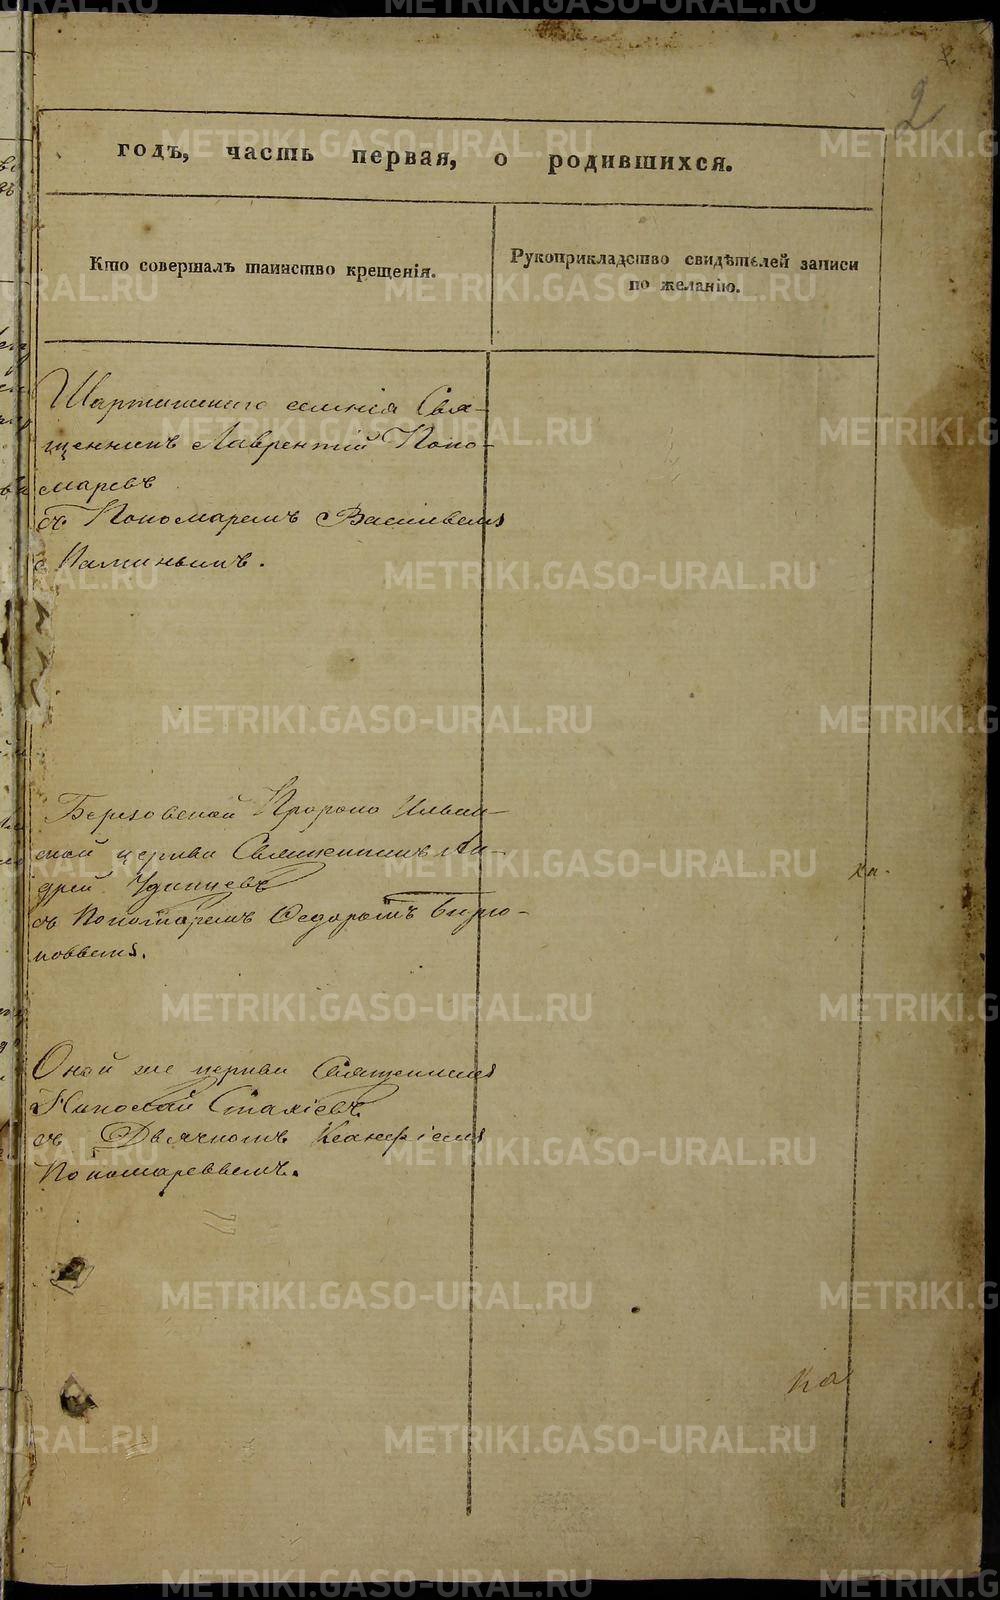 2
годъ, часть первая, о родившихся.
Кто совершалъ таинство крещенія.
Рукоприкладство свидѣтелей записи
по желанію.
селенія Свя-
щенникъ Лаврентій Поно-
маревъ
съ Пономаремъ Васильемъ
Березовской Пророко Ильин-
ской церкви Священникъ Ан-
дрей Удинцевъ
съ Пономаремъ Ѳедоромъ Бирю-
ковымъ.
Оной же церкви Священникъ
Николай
съ Дьячкомъ
Пономаревымъ.
METRIKI.GASO-URAL.RU